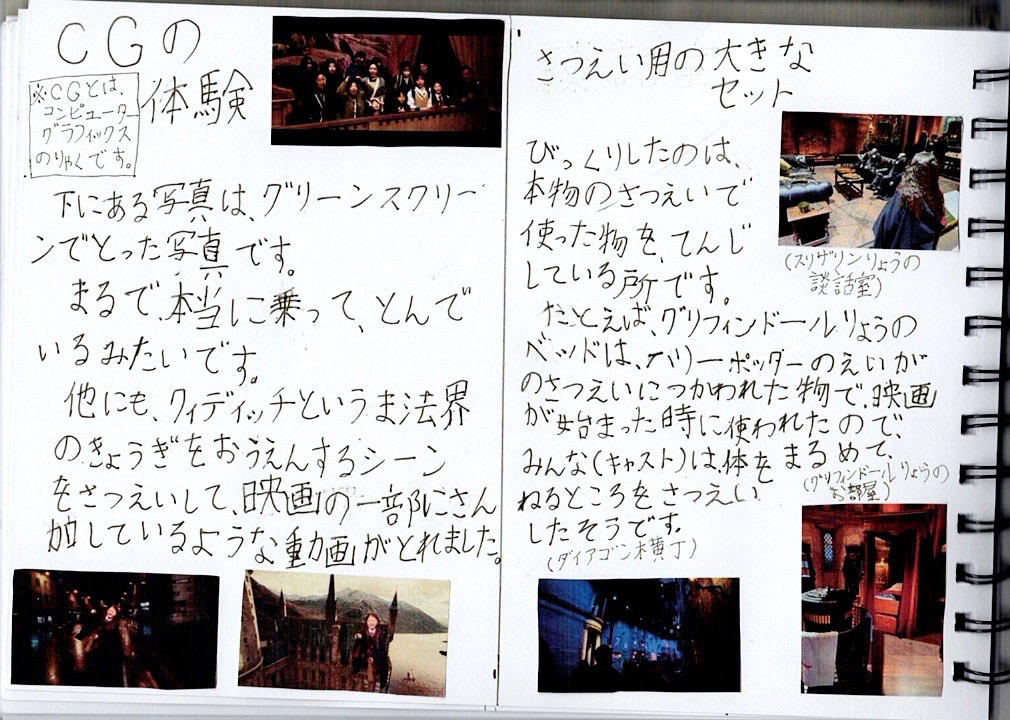 CGの
体験
※CGとは、
コンピューター
グラフィックス
のりゃくです。
下にある写真は、グリーンスクリー
ンでとった写真です。
まるで、本当に乗って、とんで
いるみたいです。
他にも、クィディッチというま法界
のきょうぎをおうえんするシーン
をさつえいして、映画の一部にさん
加しているような動画がとれました。
さつえい用の大きな
セット
びっくりしたのは、
本物のさつえいで
使った物を、てんじ
している所です。
(スリザリンりょうの
談話室)
たとえば、グリフィンドールりょうの
ベッドは、ハリーポッターのえいが
のさつえいにつかわれた物で、映画
が始まった時に使われたので、
みんな(キャスト)は、体をまるめて、
ねるところをさつえい
したそうです。
(グリフィンドールりょうの
お部屋)
(ダイアゴン横丁)